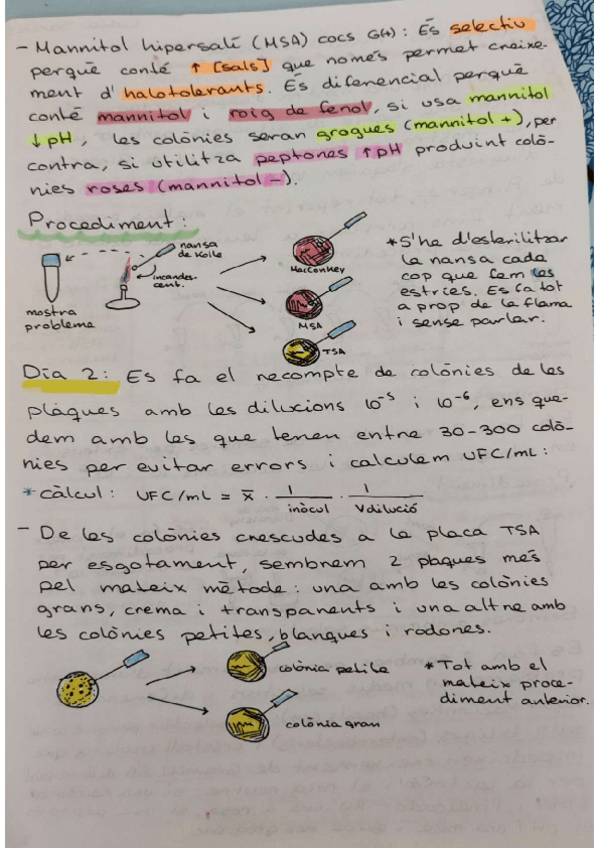 - Mannitol hipersalí (MSA) cocs G(+): És selectiu
perquè conté ↑ [sals] que només permet creixe-
ment d' halotolerants. És diferencial perquè
conté mannitol i roig de fenol, si usa mannitol
↓ pH, les colònies seran grogues (mannitol +), per
contra, si utilitza peptones ↑ pH produint colò-
nies roses (mannitol -).
Procediment:
nansa
de Kolle
incandes-
cent.
mostra
problema
MacConkey
MSA
TSA
* S'ha d'esterilitzar
la nansa cada
cop que fem les
estries. Es fa tot
a prop de la flama
i sense parlar.
Dia 2: Es fa el recompte de colònies de les
plaques amb les dilucions 10⁻⁵ i 10⁻⁶, ens que-
dem amb les que tenen entre 30-300 colò-
nies per evitar errors i calculem UFC/mL:
* càlcul: UFC/mL = x̄ · 1/inòcul · 1/Vdilució
- De les colònies crescudes a la placa TSA
per esgotament, sembrem 2 plaques més
pel mateix mètode: una amb les colònies
grans, crema i transparents i una altre amb
les colònies petites, blanques i rodones.
colònia petita
colònia gran
* Tot amb el
mateix proce-
diment anterior.